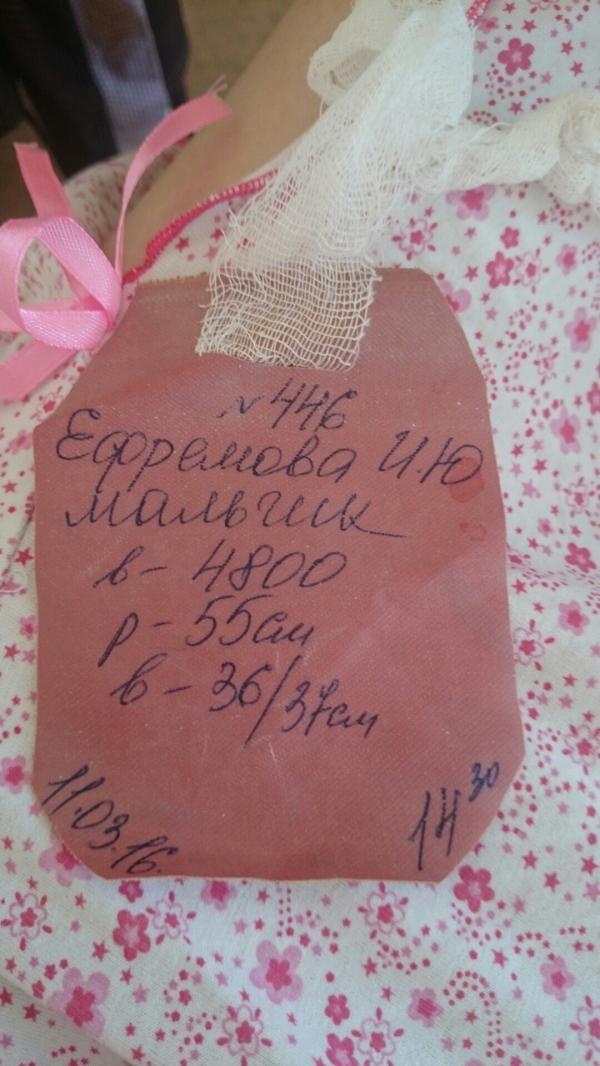 №446
Ефремова И.Ю
мальчик
в- 4800
р- 55см
в- 36/37см
11.03.16.
14 30